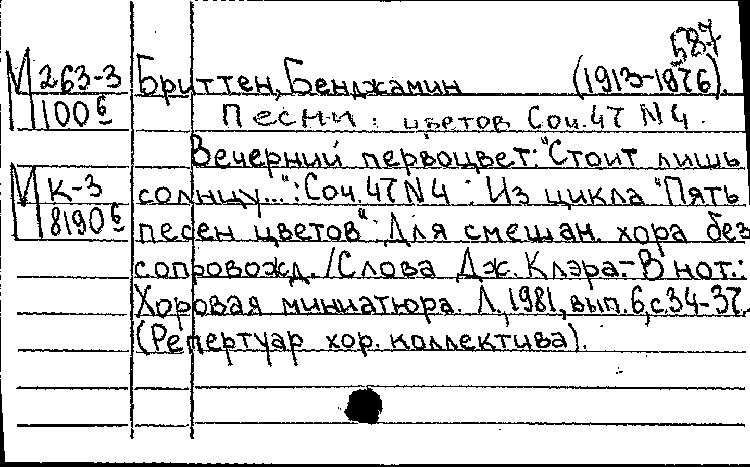 587
М 263-3 Бриттен, Бенджамин (1913-1976).
1100б Песни: цветов Соч. 47 N 4.
Вечерний первоцвет: "Стоит лишь
М К-3 солнцу...": Соч. 47 N 4: Из цикла "Пять
8190б песен цветов": Для смешан. хора без
сопровожд./Слова Дж. Клэра.-В нот.:
Хоровая миниатюра. Л., 1981, вып. 6, с. 34-37.
(Репертуар хор. коллектива).